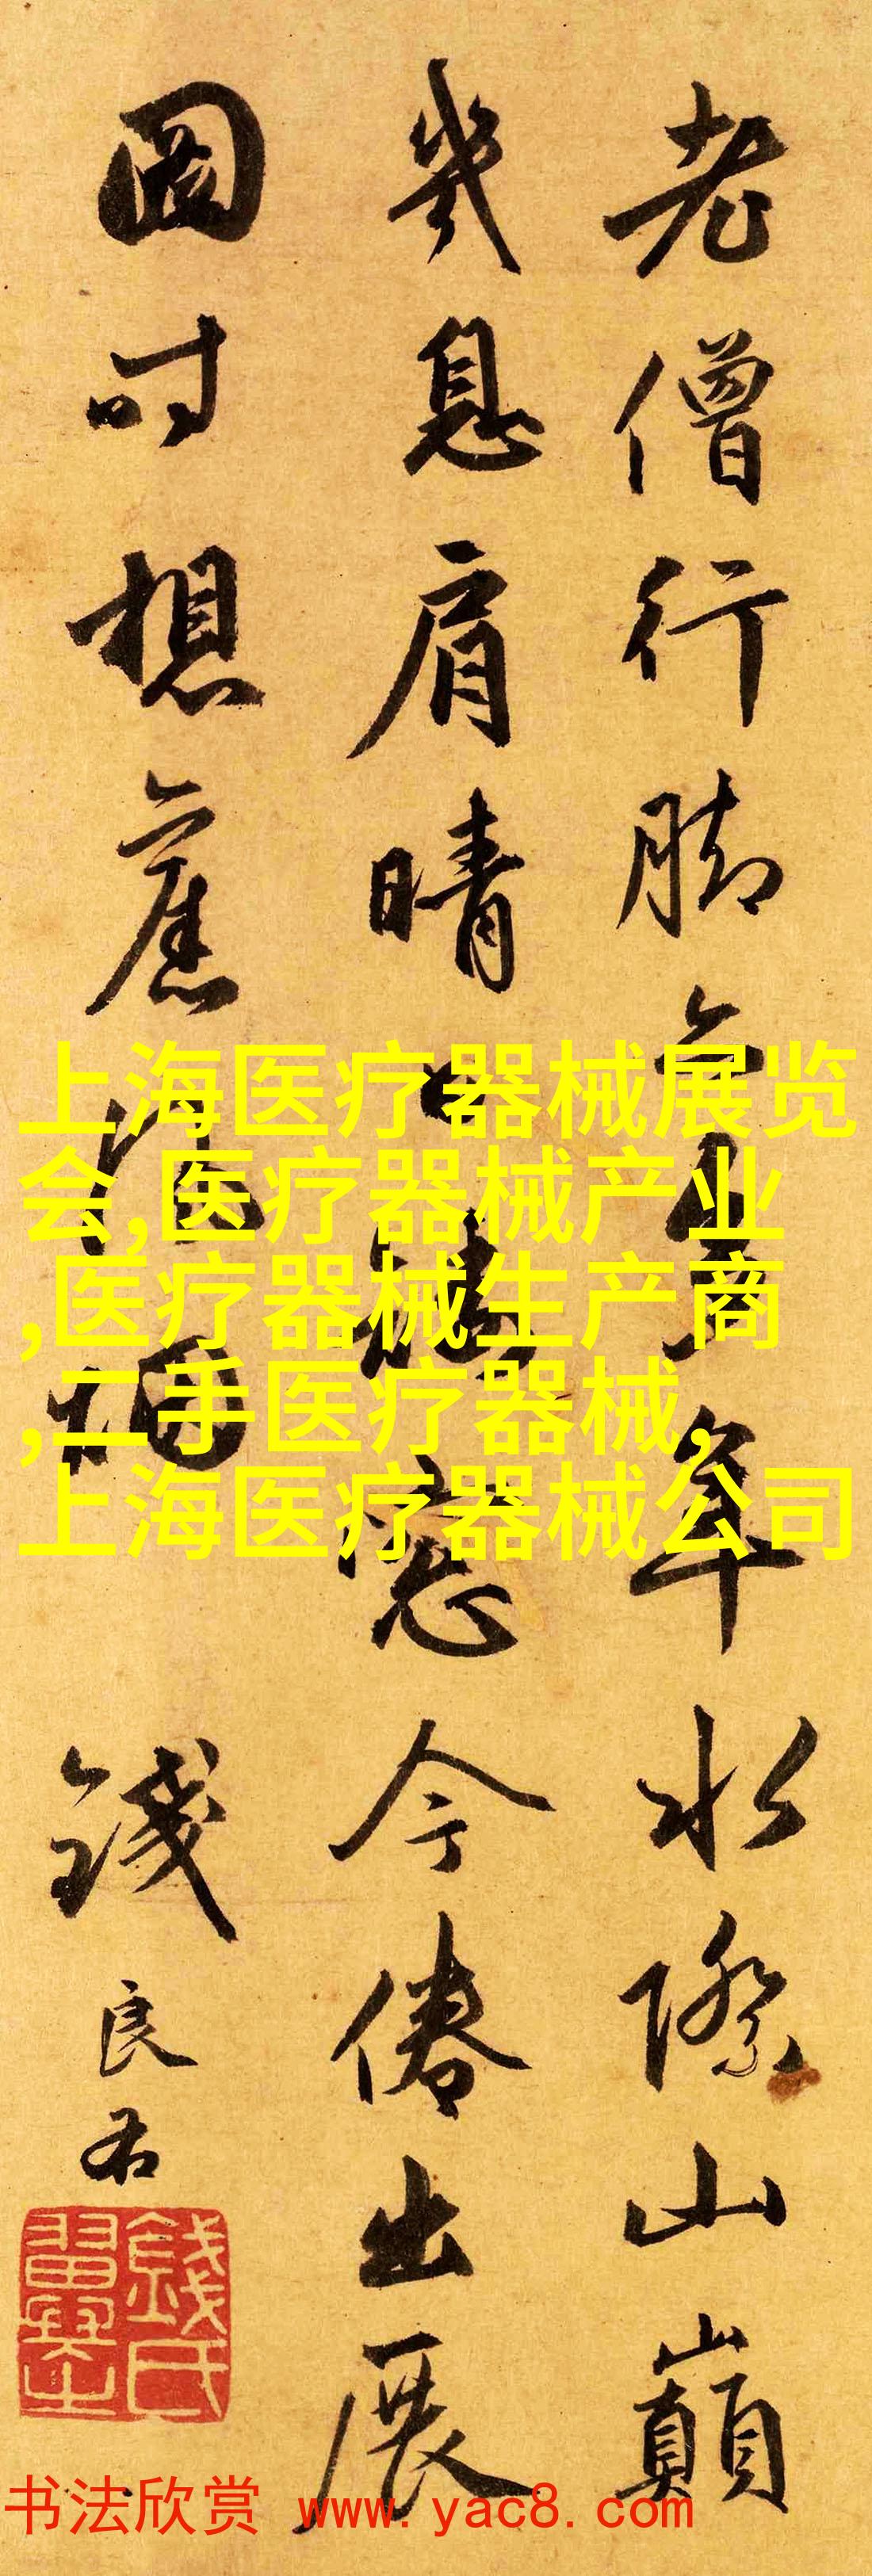 老僧行脚年水際山巔
幾息肩晴窓今倦出展
圖时想舊
錢良右
錢氏翼之
上海医疗器械展览
会,医疗器械产业
,医疗器械生产商
,二手医疗器械,
上海医疗器械公司
书法欣赏 www.yac8.com